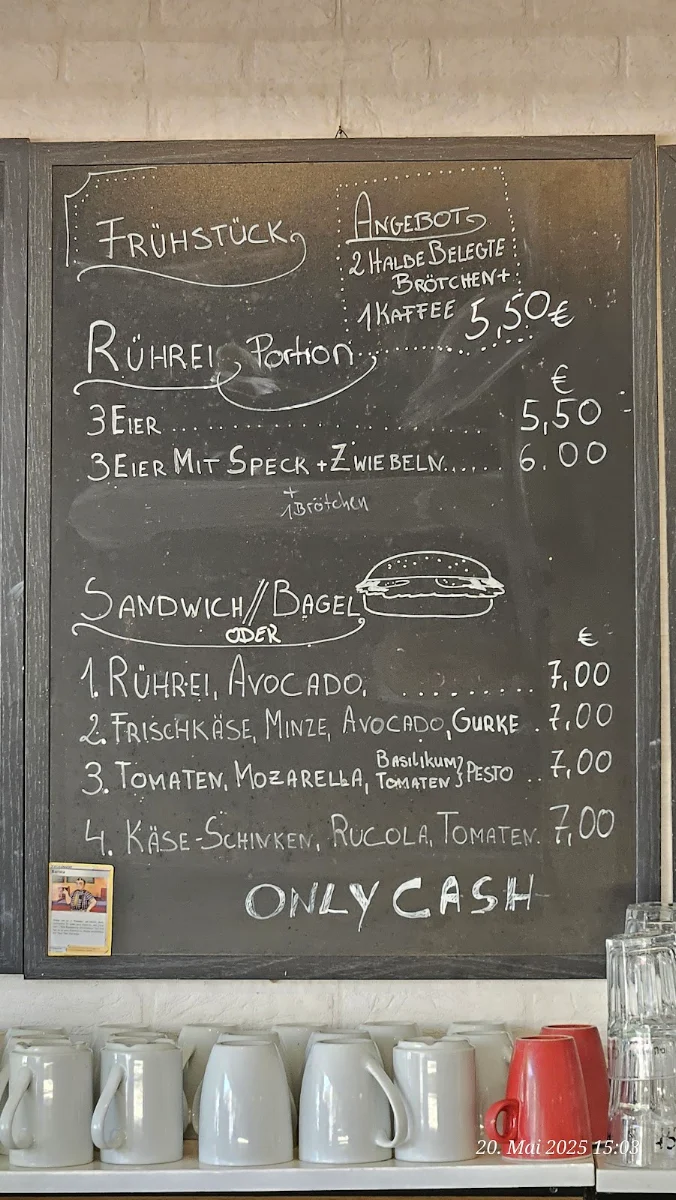 FRÜHSTÜCK
ANGEBOT
2 HALBE BELEGTE
BRÖTCHEN+
1 KAFFEE 5,50€
RÜHREI Portion
€
3 EIER .......................... 5,50
3 EIER MIT SPECK + ZWIEBELN...... 6.00
+
1 Brötchen
SANDWICH//BAGEL
ODER
€
1. RÜHREI, AVOCADO, .......... 7,00
2. FRISCHKÄSE, MINZE, AVOCADO, GURKE . 7,00
3. TOMATEN, MOZARELLA, BASILIKUM TOMATEN } PESTO .. 7,00
4. KÄSE-SCHINKEN, RUCOLA, TOMATEN. 7,00
ONLY CASH
20. Mai 2025 15:03